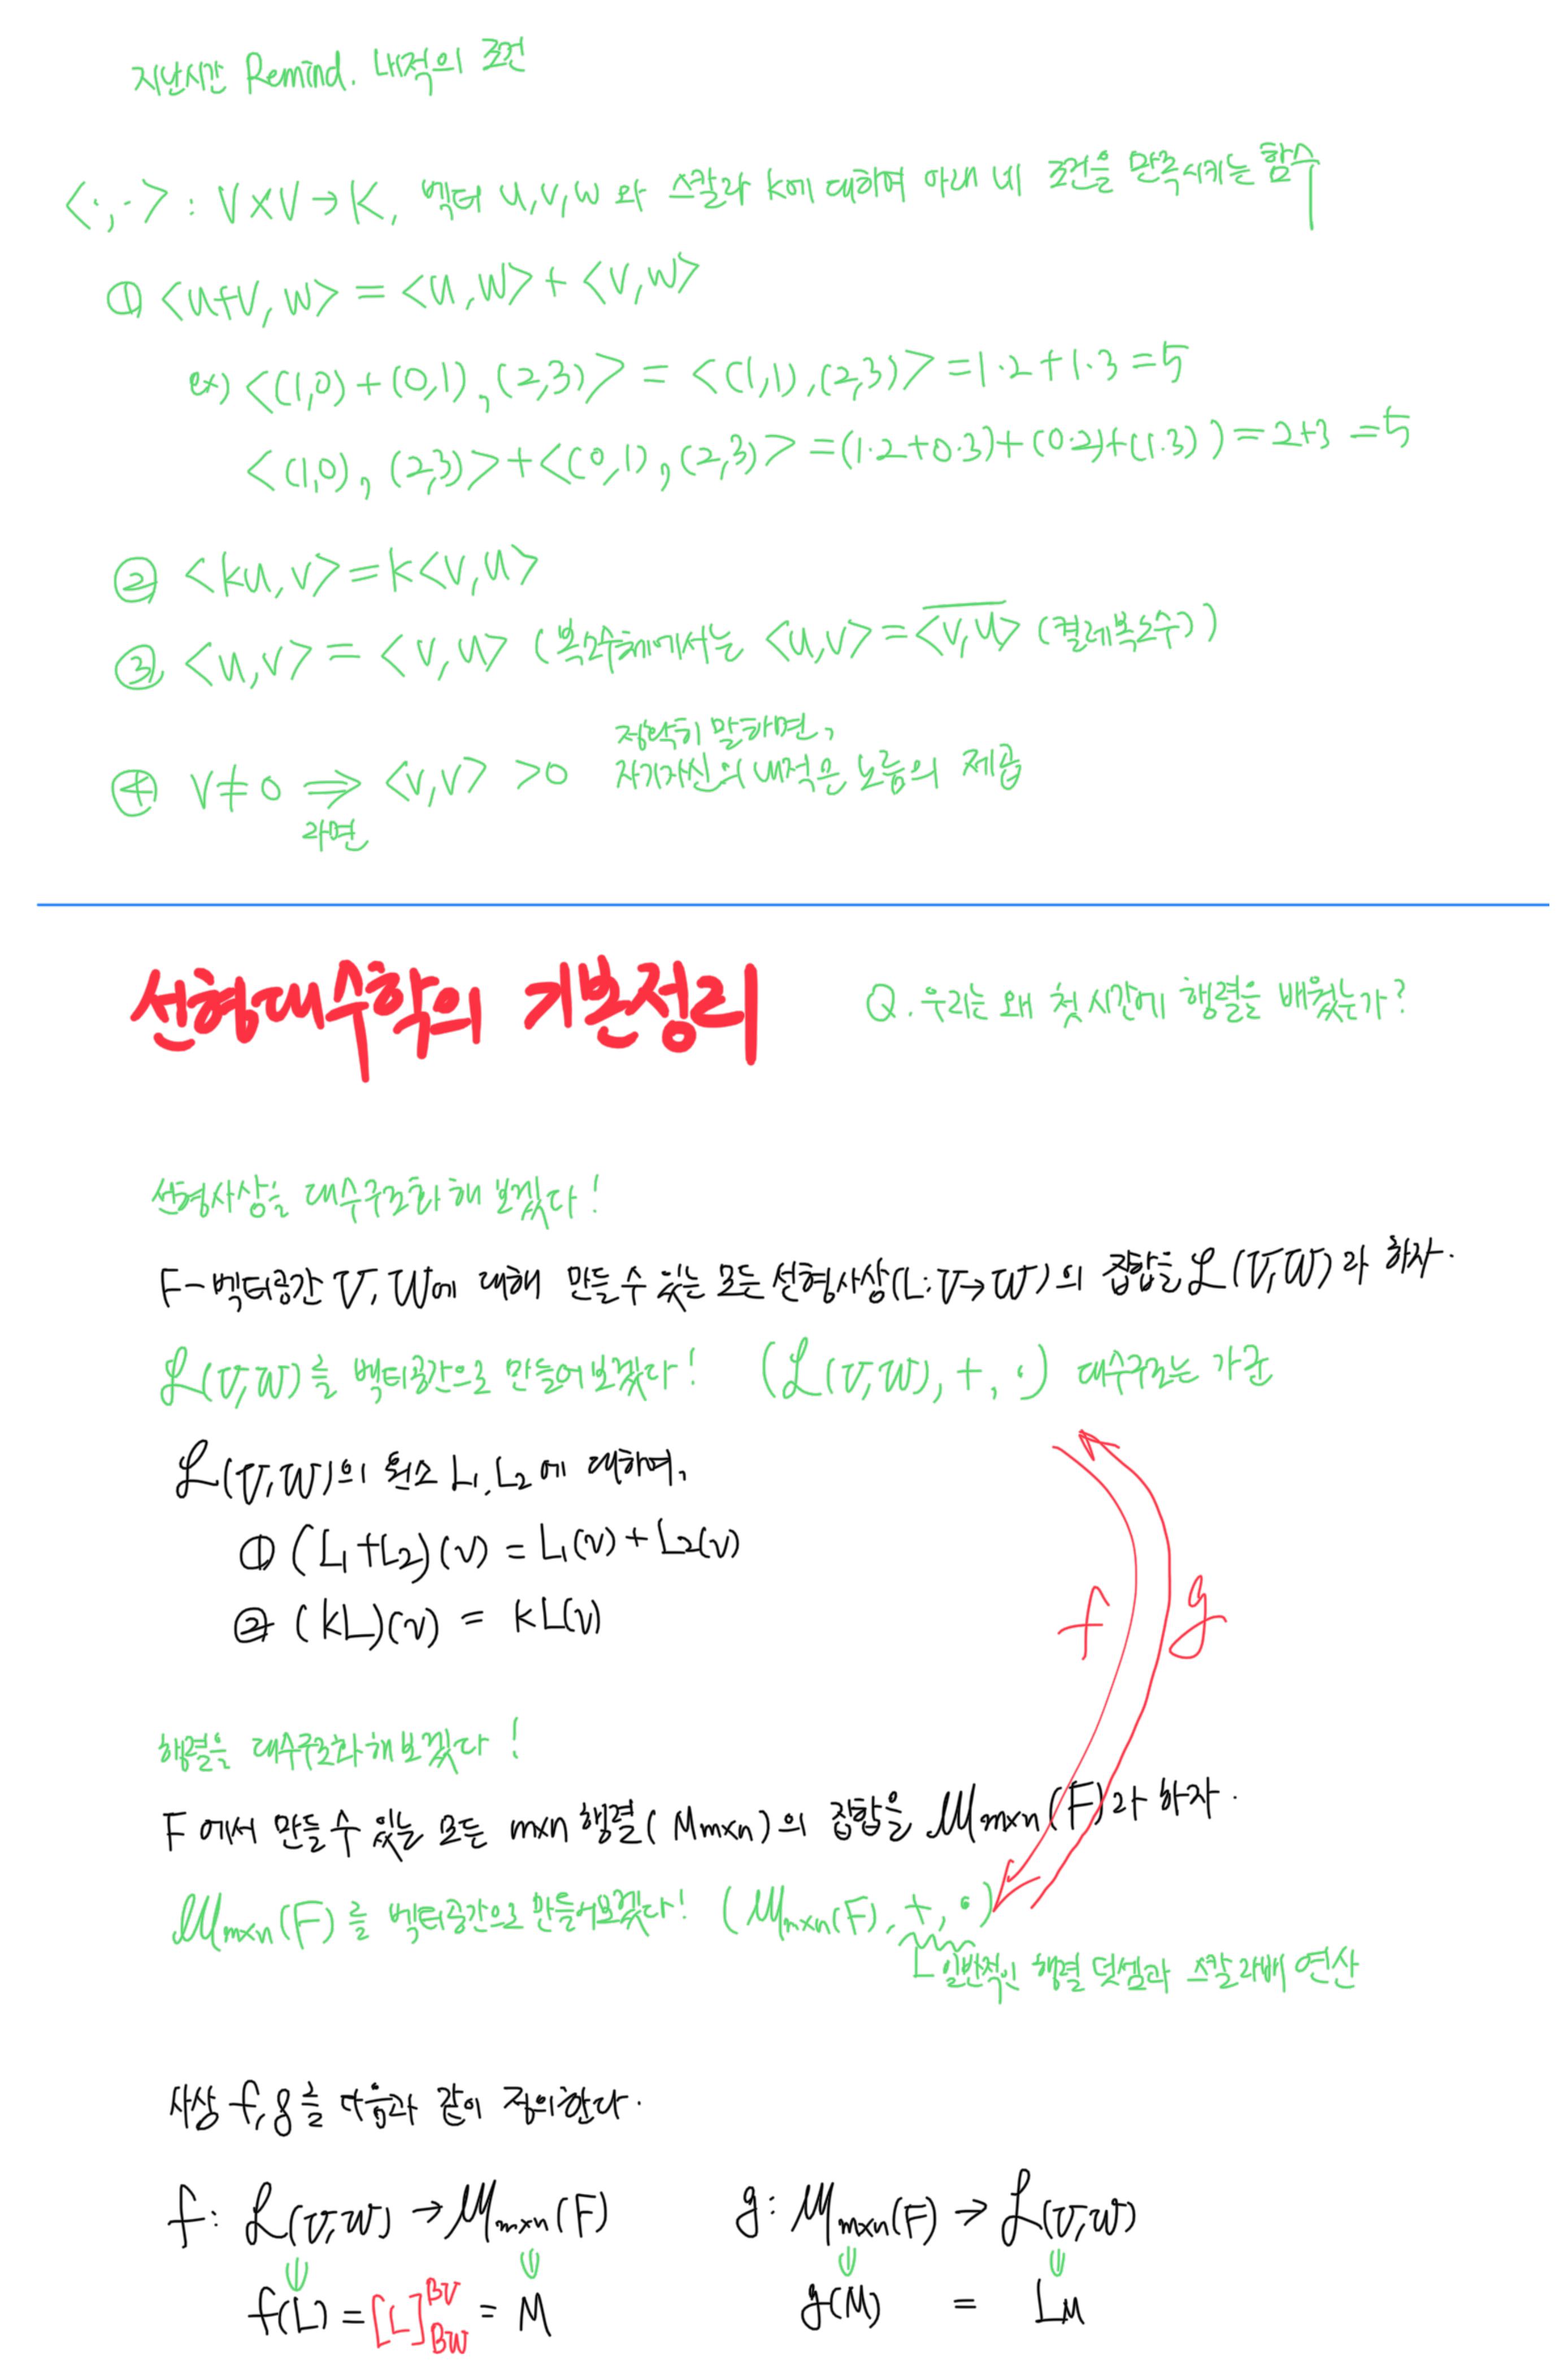 지난시간 Remind. 내적의 조건
<·,·> : V×V→K, 벡터 u,v,w 와 스칼라 k에 대하여 아래 네 조건을 만족시키는 함수
① <u+v, w> = <u,w> + <v,w>
ex) <(1,0)+(0,1), (2,3)> = <(1,1),(2,3)> = 1·2+1·3 = 5
<(1,0), (2,3)> + <(0,1), (2,3)> = (1·2+0·3)+(0·2)+(1·3)) = 2+3 = 5
② <ku, v> = k<v,u>
③ <u,v> = <v,u> (복소수체에서는 <u,v> = \overline{<v,u>} (켤레복소수))
정확히 말하면,
④ v≠0 ⇒ <v,v> >0 자기자신의 내적은 노름의 제곱
라면
선형대수학의 기본정리 Q. 우리는 왜 첫 시간에 행렬을 배웠는가?
선형사상을 대수구조화 해 보겠다!
F-벡터공간 V, W에 대해 만들 수 있는 모든 선형사상(L: V→W)의 집합을 ℒ(V,W)라 하자.
ℒ(V,W)를 벡터공간으로 만들어보겠다! (ℒ(V,W), +, ·) 대수구조는 가군
ℒ(V,W)의 원소 L₁, L₂에 대하여,
① (L₁+L₂)(v) = L₁(v) + L₂(v)
② (kL)(v) = kL(v)
f g
행렬을 대수구조화해보겠다!
F 에서 만들 수 있는 모든 m×n 행렬(Mm×n)의 집합을 ℳm×n(F)라 하자.
ℳm×n(F)를 벡터공간으로 만들어보겠다! (ℳm×n(F), +, ·)
일반적인 행렬 덧셈과 스칼라배 연산
사상 f, g를 다음과 같이 정의한다.
f: ℒ(V,W) → ℳm×n(F) g: ℳm×n(F) → ℒ(V,W)
f(L) = [L]^{BV}_{BW} = M g(M) = LM